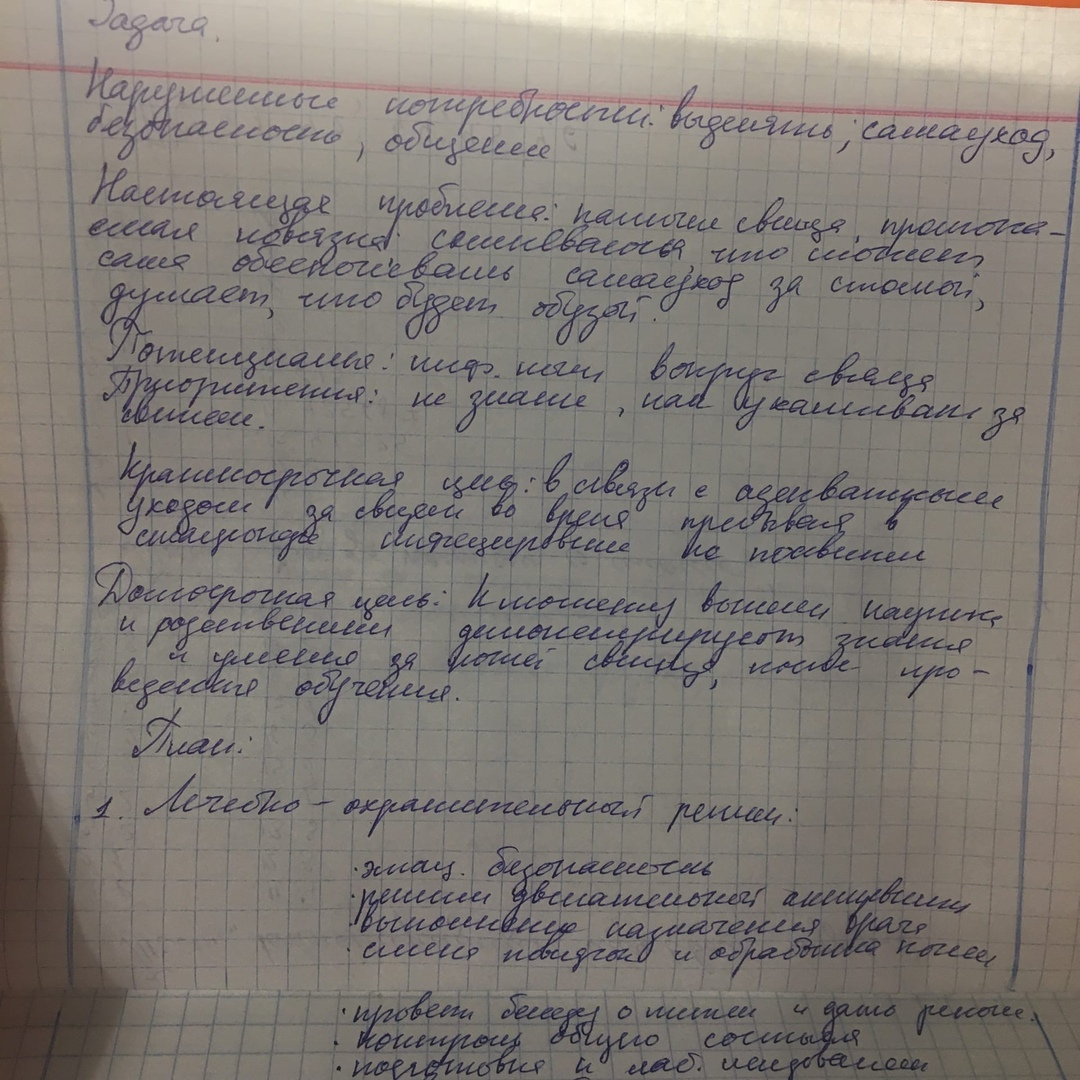 Задача.
Нарушенные потребности: выделять, самоуход,
безопасность, общение
Настоящая проблема: свища, промока-
емая повязка сомневаться, что сможет
сама обеспечивать самоуход за стомой,
думает, что будет обузой.
Потенциальная: инф. кожи вокруг свища
Приоритетная: не знание, как ухаживать за
свищем.
Краткосрочная цель: в связи с адекватным
уходом за свищем во время пребывания в
стационаре инфицирование не
Долгосрочная цель: К моменту выписки
и родственники демонстрируют знания
и умения за кожей свища, после про-
ведения обучения.
План:
1. Лечебно-охранительный режим:
· эмоц. безопасность
· режим двигательной активности
· выполнение назначения врача
· смена повязки и обработка кожи
· провести беседу о питании и дать реком.
· контроль общего состояния
· подготовка к лаб. исследованиям